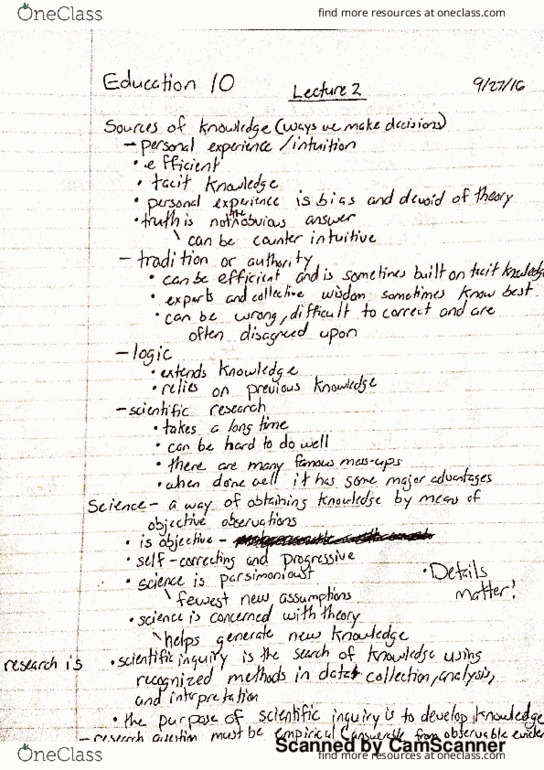 OneClass
find more resources at oneclass.com
Education 10
Lecture 2
9/27/16
Sources of knowledge (ways we make decisions)
- personal experience / intuition
• efficient
• tacit knowledge
• personal experience is bias and devoid of theory
• truth is not the obvious answer
\ can be counter intuitive
- tradition or authority
• can be efficient and is sometimes built on tacit knowledge
• experts and collective wisdom sometimes know best
• can be wrong, difficult to correct and are
often disagreed upon
- logic
• extends knowledge
• relies on previous knowledge
- scientific research
• takes a long time
• can be hard to do well
• there are many famous mess-ups
• when done well it has some major advantages
Science - a way of obtaining knowledge by means of
objective observations
• is objective -
• self-correcting and progressive
• science is parsimonious
\ fewest new assumptions
• Details
matter!
• science is concerned with theory
\ helps generate new knowledge
research is • scientific inquiry is the search of knowledge using
recognized methods in data collection, analysis,
and interpretation
• the purpose of scientific inquiry is to develop knowledge
- research question must be empirical (answerable from observable eviden
Scanned by CamScanner
OneClass
find more resources at oneclass.com